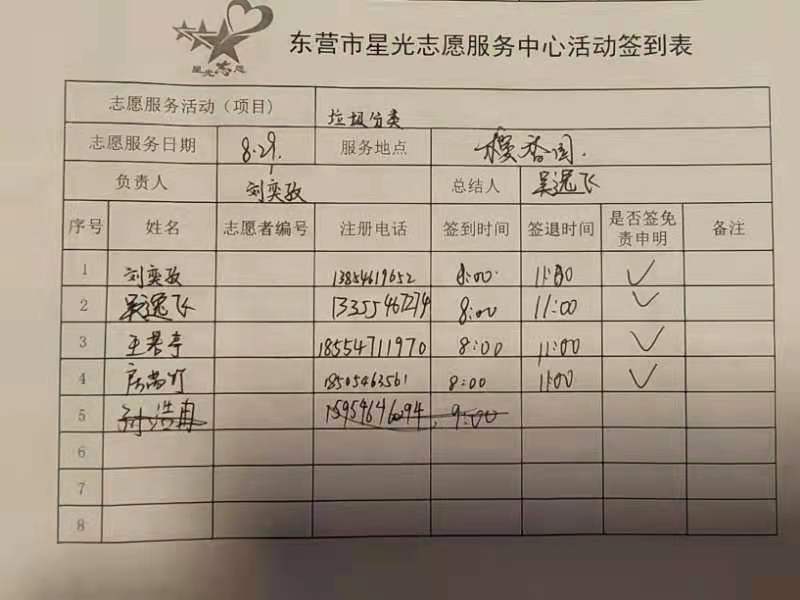 星光志愿
东营市星光志愿服务中心活动签到表
志愿服务活动（项目） 垃圾分类
志愿服务日期 8.29. 服务地点 香园.
负责人 刘奕孜 总结人 吴逸飞
序号 姓名 志愿者编号 注册电话 签到时间 签退时间 是否签免责申明 备注
1 刘奕孜 13854619652 8:00 11:00 ✓
2 吴逸飞 13355467274 8:00 11:00 ✓
3 王若亭 18554711970 8:00 11:00 ✓
4 房尚灯 18505463561 8:00 11:00 ✓
5 9:00
6
7
8